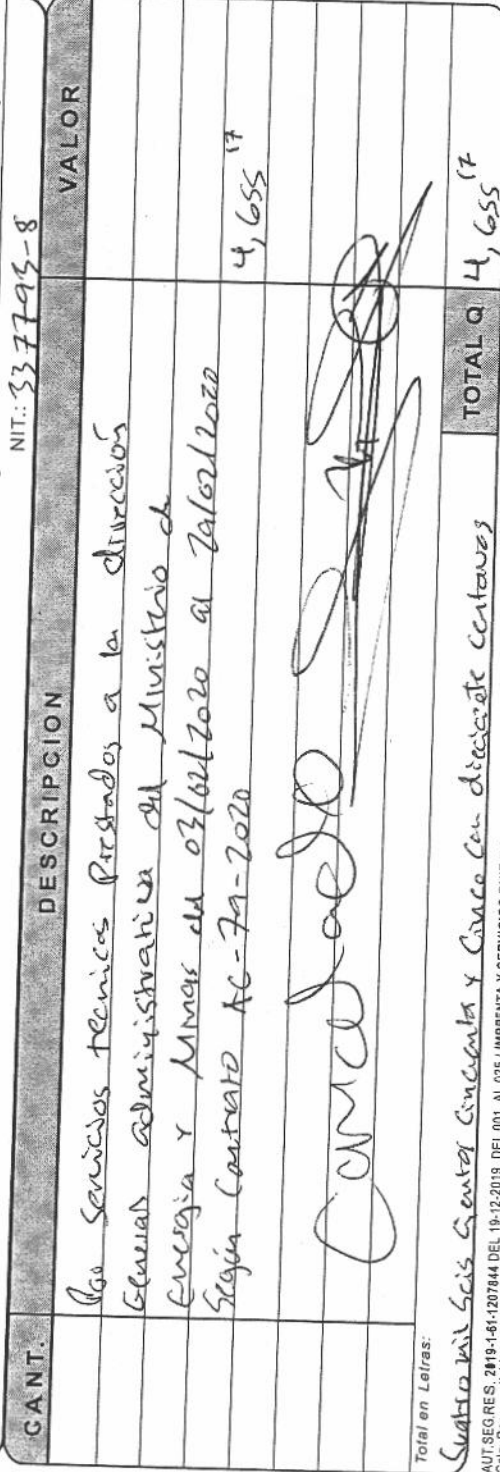 NIT.: 337793-8
CANT. DESCRIPCION VALOR
Por Servicios tecnicos Prestados a la dirección
General administrativa del Ministerio de
Energia y Minas del 03/02/2020 al 29/02/2020
Según Contrato AC-79-2020 4,655 17
Cancelado
Total en Letras:
Cuatro mil Seis Cientos Cincuenta y Cinco Con diecisiete centavos TOTAL Q 4,655 17
AUT.SEG.RES. 2019-1-61-1207844 DEL 19-12-2019 DEL 001 AL 025 / IMPRENTA Y SERVICIOS